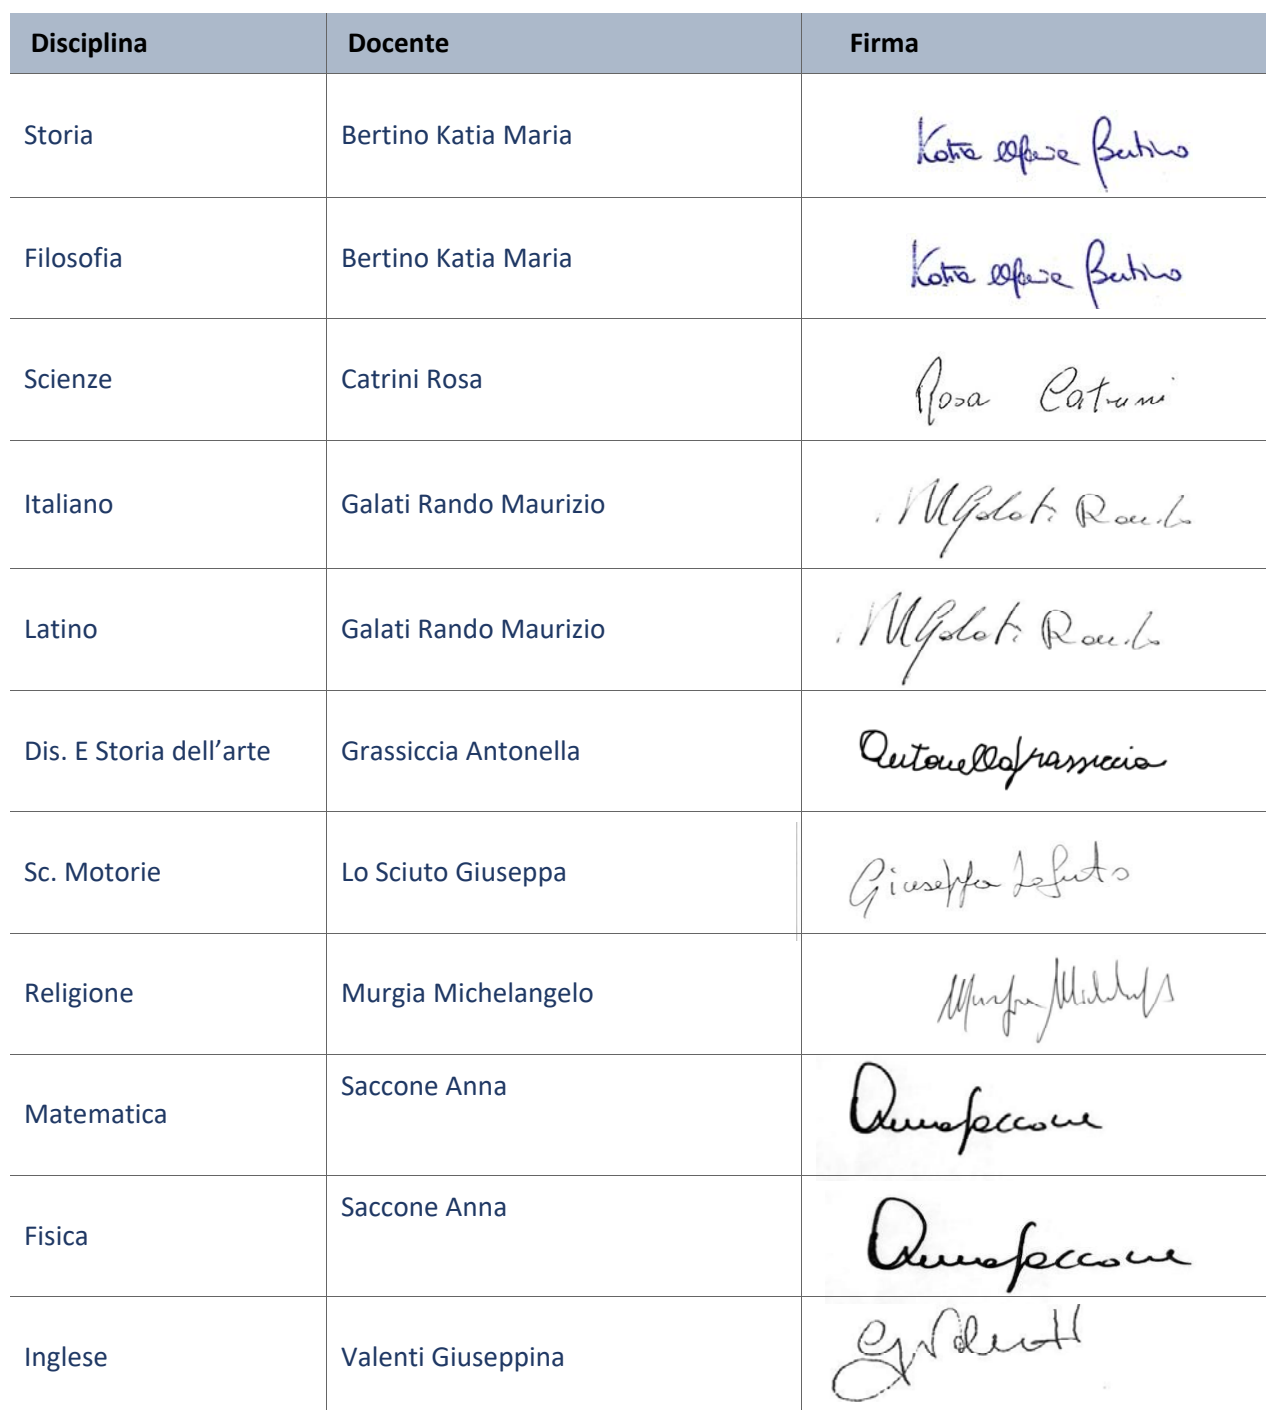 Disciplina Docente Firma
Storia Bertino Katia Maria Katia Maria Bertino
Filosofia Bertino Katia Maria Katia Maria Bertino
Scienze Catrini Rosa Rosa Catrini
Italiano Galati Rando Maurizio MGalati Rando
Latino Galati Rando Maurizio MGalati Rando
Dis. E Storia dell’arte Grassiccia Antonella Antonella Grassiccia
Sc. Motorie Lo Sciuto Giuseppa Giuseppa Lo Sciuto
Religione Murgia Michelangelo Murgia Michelangelo
Matematica Saccone Anna Anna Saccone
Fisica Saccone Anna Anna Saccone
Inglese Valenti Giuseppina G Valenti